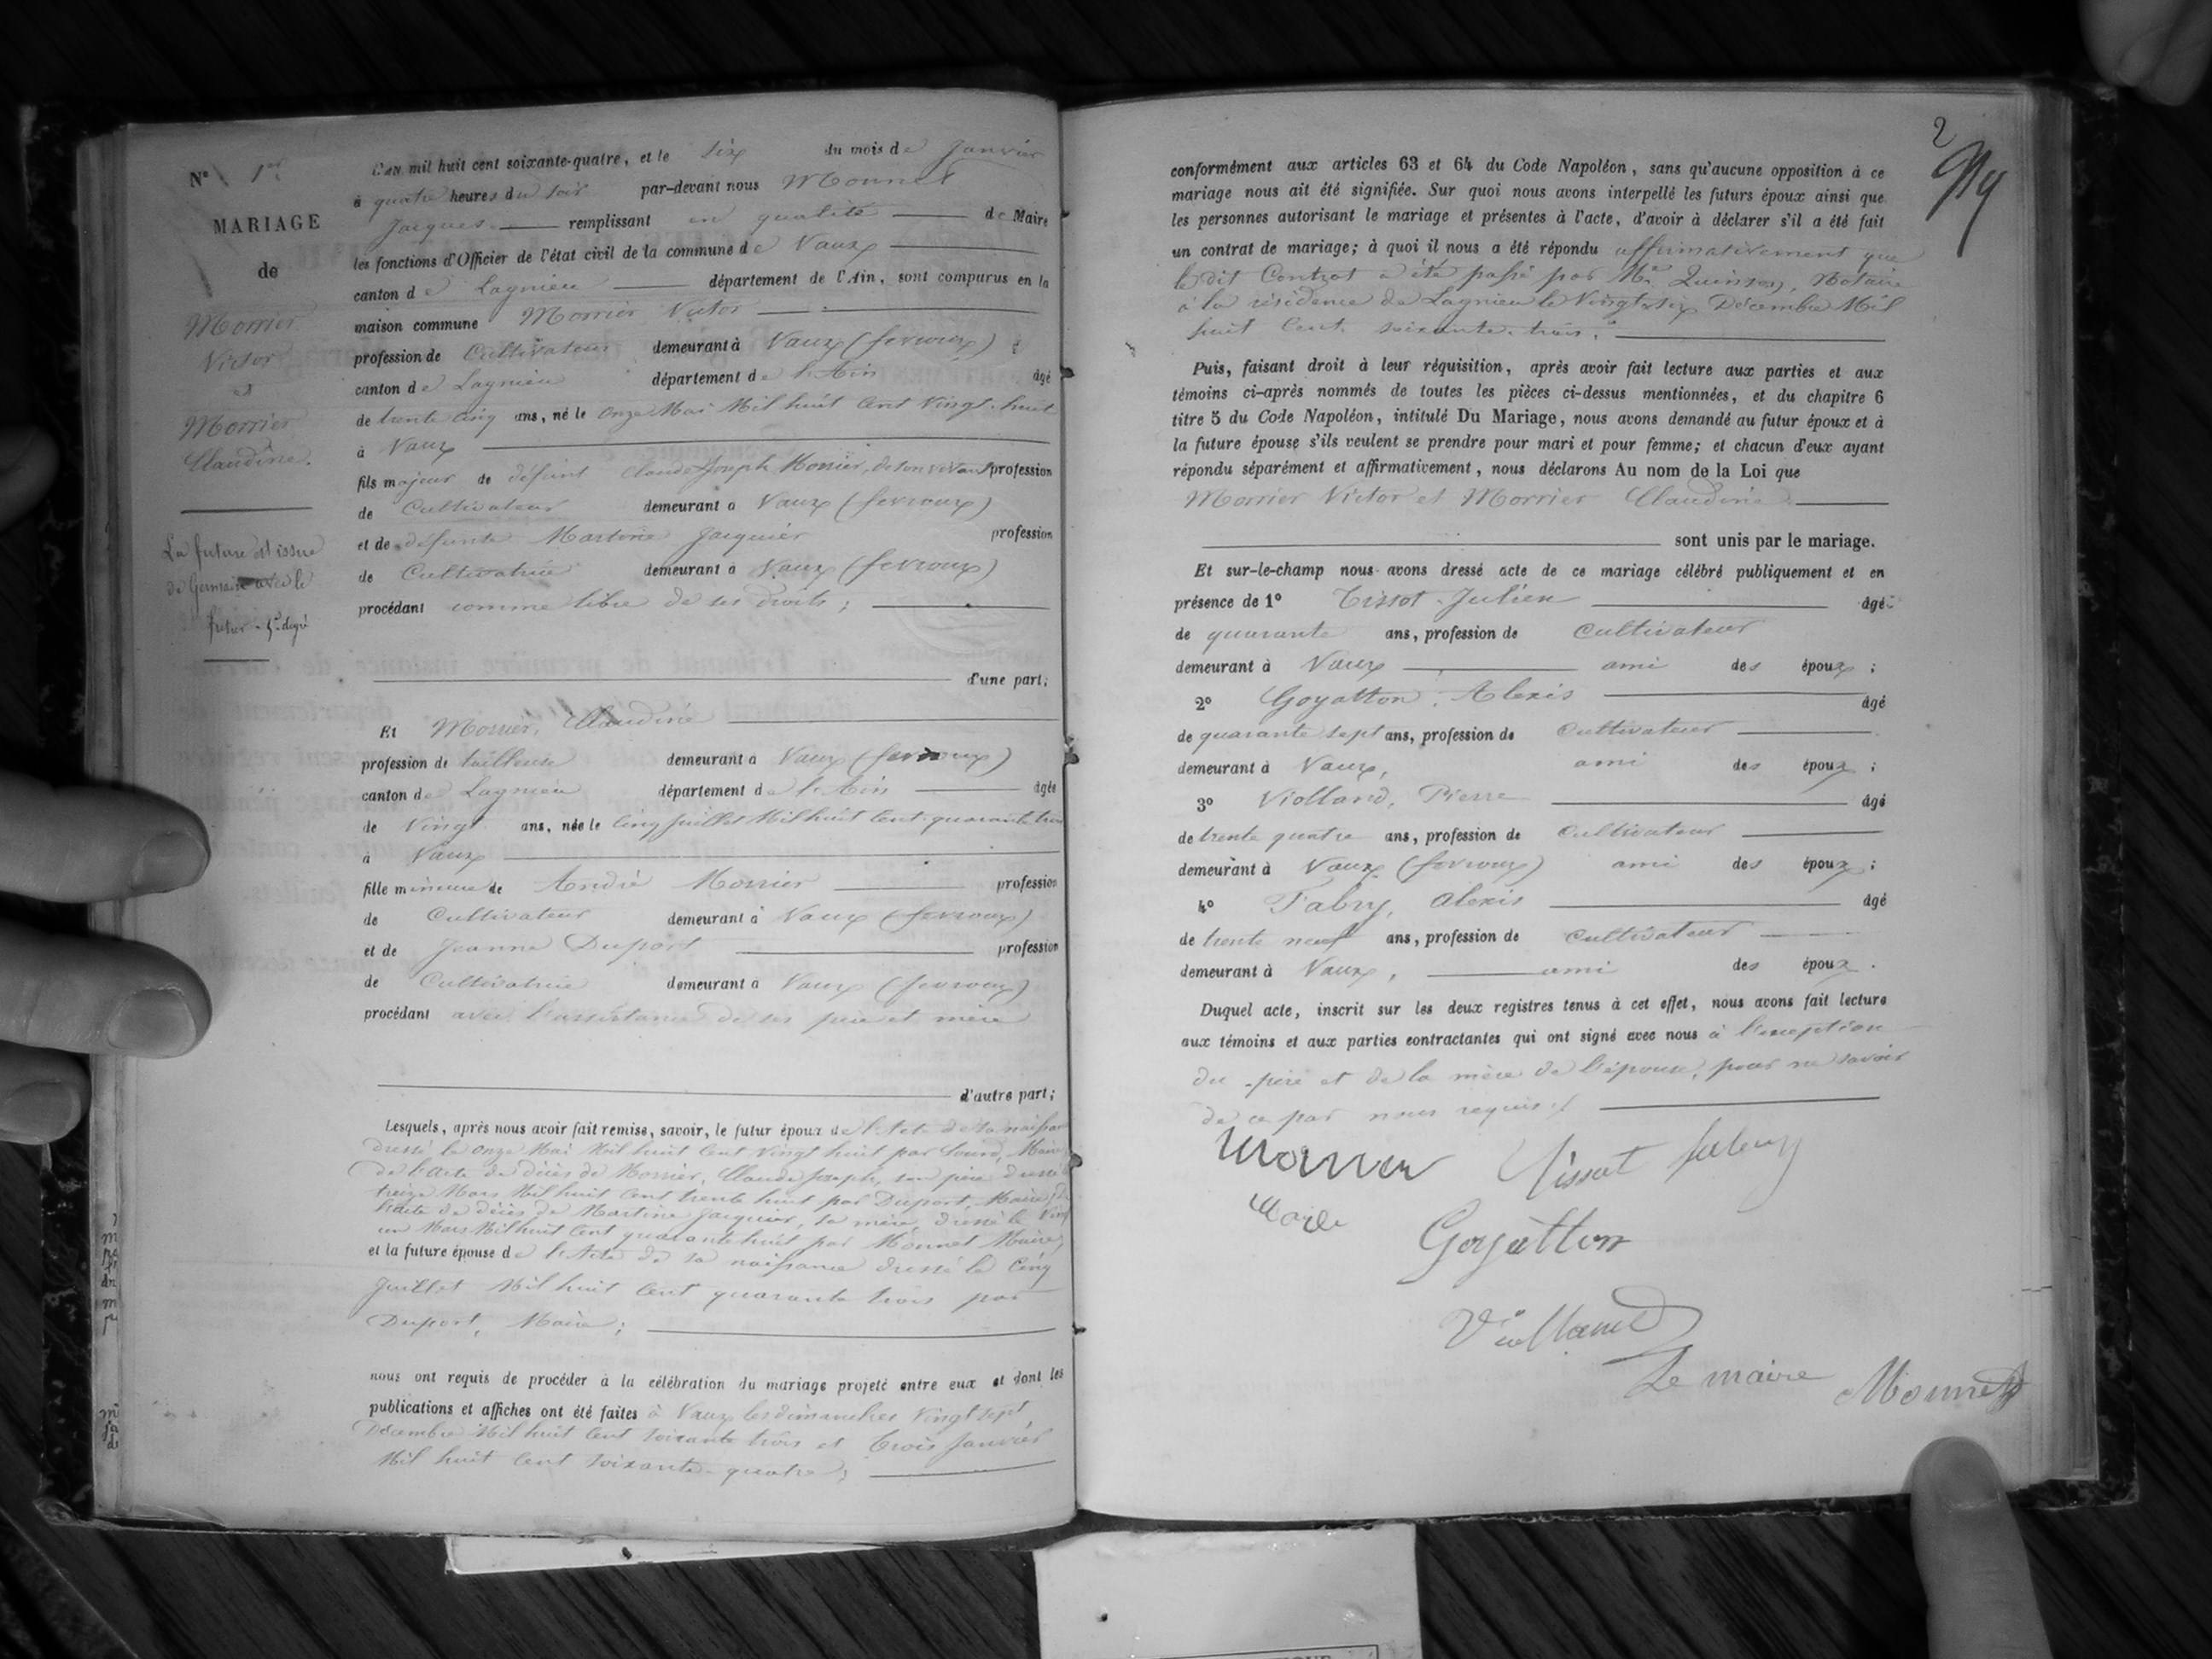 N° 1er
MARIAGE
de
Morrier
Victor
et
Morrier
Claudine.
La future est issue
de Germain avec le
futur - 4e degré
L'an mil huit cent soixante-quatre, et le six du mois de Janvier
à quatre heures du soir par-devant nous Monnet
Jacques remplissant en qualité de Maire
les fonctions d'Officier de l'état civil de la commune de Vaux
canton de Lagnieu département de l'Ain, sont comparus en la
maison commune Morrier Victor
profession de Cultivateur demeurant à Vaux (fevroux)
canton de Lagnieu département de l'Ain âgé
de trente cinq ans, né le onze Mai Mil huit Cent Vingt-huit
à Vaux
fils majeur de défunt Claude Joseph Morrier, de son vivant profession
de Cultivateur demeurant à Vaux (fevroux)
et de défunte Martine Jacquier profession
de Cultivatrice demeurant à Vaux (fevroux)
procédant comme libre de ses droits ;
d'une part;
Et Morrier, Claudine
profession de tailleuse demeurant à Vaux (fevroux)
canton de Lagnieu département de l'Ain âgée
de Vingt ans, née le Cinq Juillet Mil huit Cent quarante trois
à Vaux
fille mineure de André Morrier profession
de Cultivateur demeurant à Vaux (fevroux)
et de Jeanne Duport profession
de Cultivatrice demeurant à Vaux (fevroux)
procédant avec l'assistance de ses père et mère
d'autre part;
Lesquels, après nous avoir fait remise, savoir, le futur époux de l'Acte de sa naissance
dressé le onze Mai Mil huit Cent Vingt huit par Maire
de l'Acte de décès de Morrier, Claude Joseph, son père dressé
treize Mars Mil huit Cent trente huit par Duport, Maire, de
l'acte de décès de Martine Jacquier, sa mère, dressé le Vingt
un Mars Mil huit Cent quarante huit par Monnet Maire,
et la future épouse de l'Acte de sa naissance dressé le Cinq
Juillet Mil huit Cent quarante trois par
Duport, Maire ;
nous ont requis de procéder à la célébration du mariage projeté entre eux et dont les
publications et affiches ont été faites à Vaux les dimanches Vingt sept
Décembre Mil huit Cent soixante trois et trois Janvier
Mil huit Cent soixante-quatre ;
2
conformément aux articles 63 et 64 du Code Napoléon, sans qu'aucune opposition à ce
mariage nous ait été signifiée. Sur quoi nous avons interpellé les futurs époux ainsi que
les personnes autorisant le mariage et présentes à l'acte, d'avoir à déclarer s'il a été fait
un contrat de mariage; à quoi il nous a été répondu affirmativement que
le dit Contrat a été passé par Me Quinson, Notaire
à la résidence de Lagnieu le Vingt-six Décembre Mil
huit Cent soixante-trois.
Puis, faisant droit à leur réquisition, après avoir fait lecture aux parties et aux
témoins ci-après nommés de toutes les pièces ci-dessus mentionnées, et du chapitre 6
titre 5 du Code Napoléon, intitulé Du Mariage, nous avons demandé au futur époux et à
la future épouse s'ils veulent se prendre pour mari et pour femme; et chacun d'eux ayant
répondu séparément et affirmativement, nous déclarons Au nom de la Loi que
Morrier Victor et Morrier Claudine
sont unis par le mariage.
Et sur-le-champ nous avons dressé acte de ce mariage célébré publiquement et en
présence de 1° Tissot Julien âgé
de quarante ans, profession de Cultivateur
demeurant à Vaux ami des époux ;
2° Goyatton, Alexis âgé
de quarante sept ans, profession de Cultivateur
demeurant à Vaux, ami des époux ;
3° Violland, Pierre âgé
de trente quatre ans, profession de Cultivateur
demeurant à Vaux (fevroux) ami des époux ;
4° Fabry, Alexis âgé
de trente neuf ans, profession de Cultivateur
demeurant à Vaux, ami des époux.
Duquel acte, inscrit sur les deux registres tenus à cet effet, nous avons fait lecture
aux témoins et aux parties contractantes qui ont signé avec nous à l'exception
du père et de la mère de l'épouse, pour ne savoir
de ce par nous requis ./.
Tissot fabry
Goyatton
Violland
Le maire Monnet